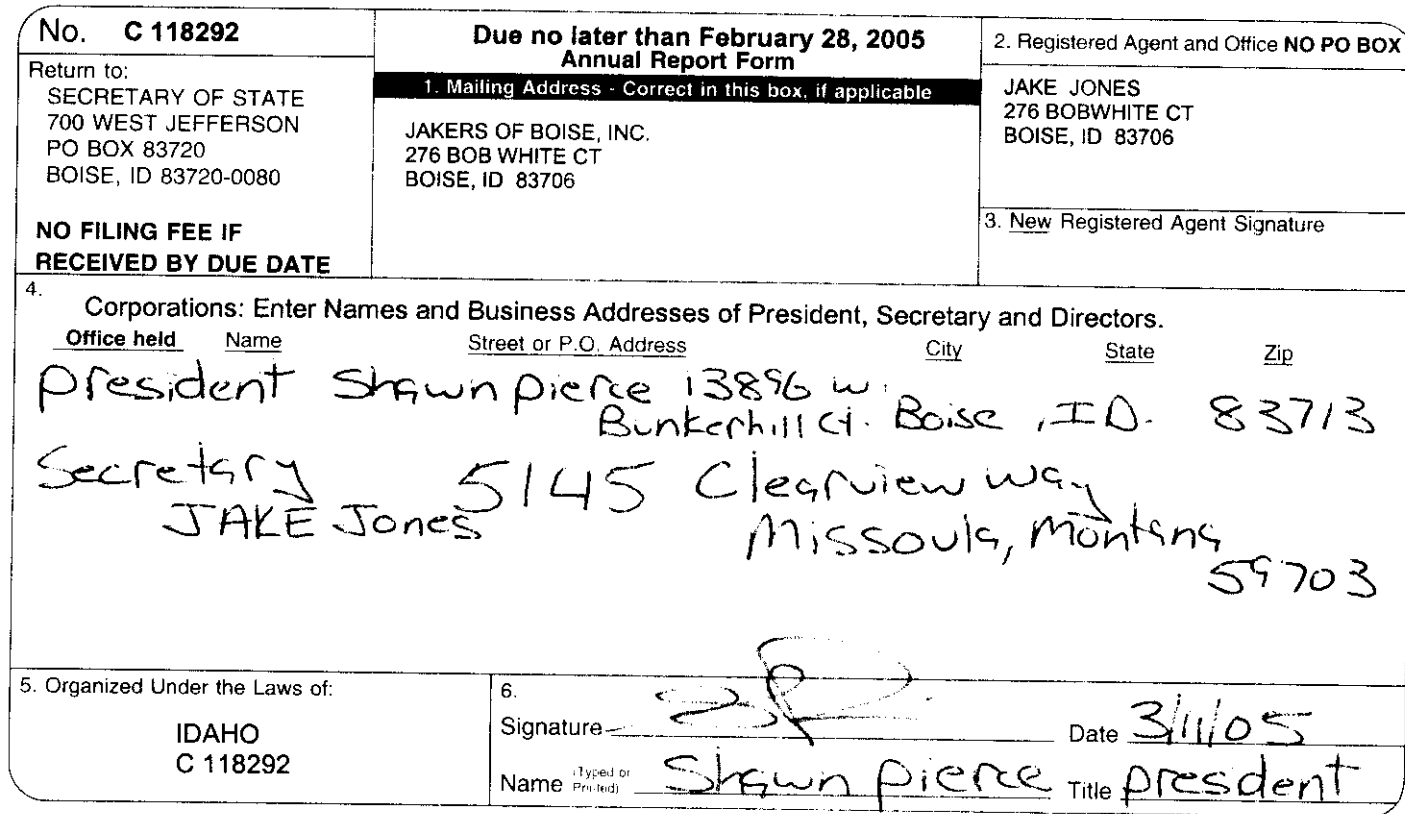 No. C 118292
Return to:
SECRETARY OF STATE
700 WEST JEFFERSON
PO BOX 83720
BOISE, ID 83720-0080
NO FILING FEE IF
RECEIVED BY DUE DATE
Due no later than February 28, 2005
Annual Report Form
1. Mailing Address - Correct in this box, if applicable
JAKERS OF BOISE, INC.
276 BOB WHITE CT
BOISE, ID 83706
2. Registered Agent and Office NO PO BOX
JAKE JONES
276 BOBWHITE CT
BOISE, ID 83706
3. New Registered Agent Signature
4.
Corporations: Enter Names and Business Addresses of President, Secretary and Directors.
Office held Name Street or P.O. Address City State Zip
president Shawn pierce 13896 w.
Bunkerhill Ct. Boise, ID. 83713
Secretary 5145 Clearview way
JAKE Jones Missoula, Montana
59703
5. Organized Under the Laws of:
IDAHO
C 118292
6.
Signature Date 3/11/05
Name (Typed or Printed) Shawn pierce Title president